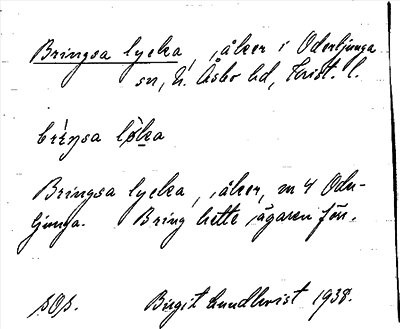 Bringsa lycka, åker i Oderljunga
sn, N. Åsbo hd, Krist. l.
brìŋsa lø̀ka
Bringsa lycka, åker, m 4 Oder-
ljunga. Bring hette ägaren förr.
Birgit Lundkvist 1938.